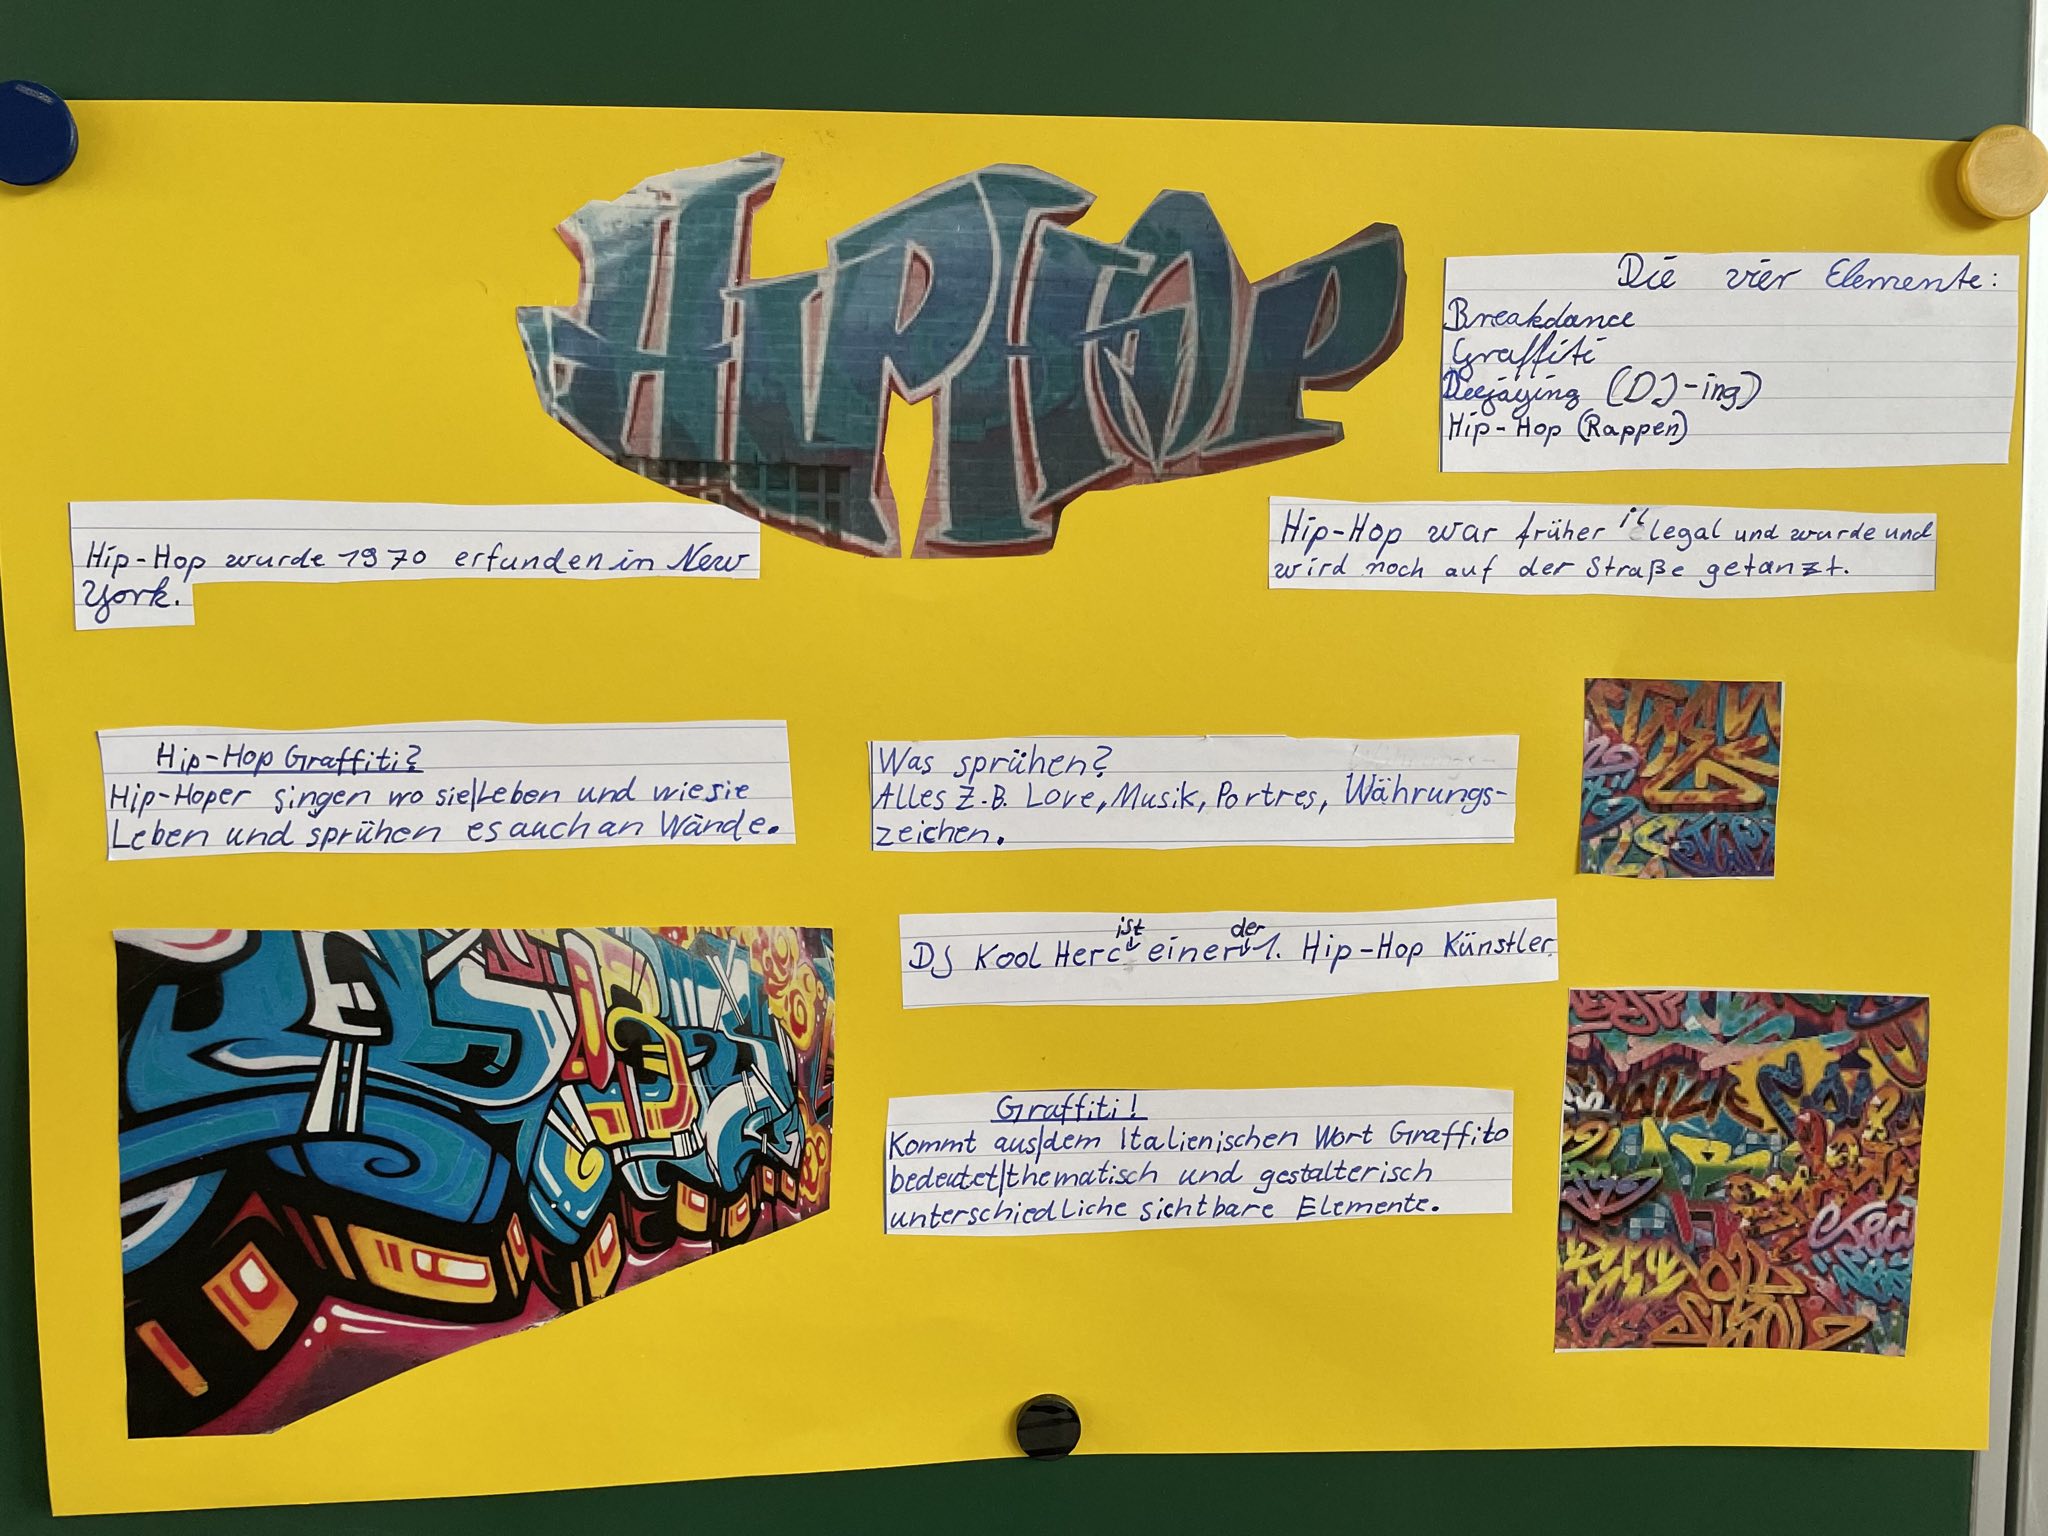 HIPHOP
Die vier Elemente:
Breakdance
Graffiti
Deejaying (DJ-ing)
Hip-Hop (Rappen)
Hip-Hop wurde 1970 erfunden in New
York.
Hip-Hop war früher illegal und wurde und
wird noch auf der Straße getanzt.
Hip-Hop Graffiti?
Hip-Hoper singen wo sie|Leben und wie sie
Leben und sprühen es auch an Wände.
Was sprühen?
Alles Z.B. Love, Musik, Portres, Währungs-
zeichen.
DJ Kool Herc ist einer der 1. Hip-Hop Künstler.
Graffiti!
Kommt aus|dem Italienischen Wort Graffito
bedeutet|thematisch und gestalterisch
unterschiedliche sichtbare Elemente.
OLD
SKOOL